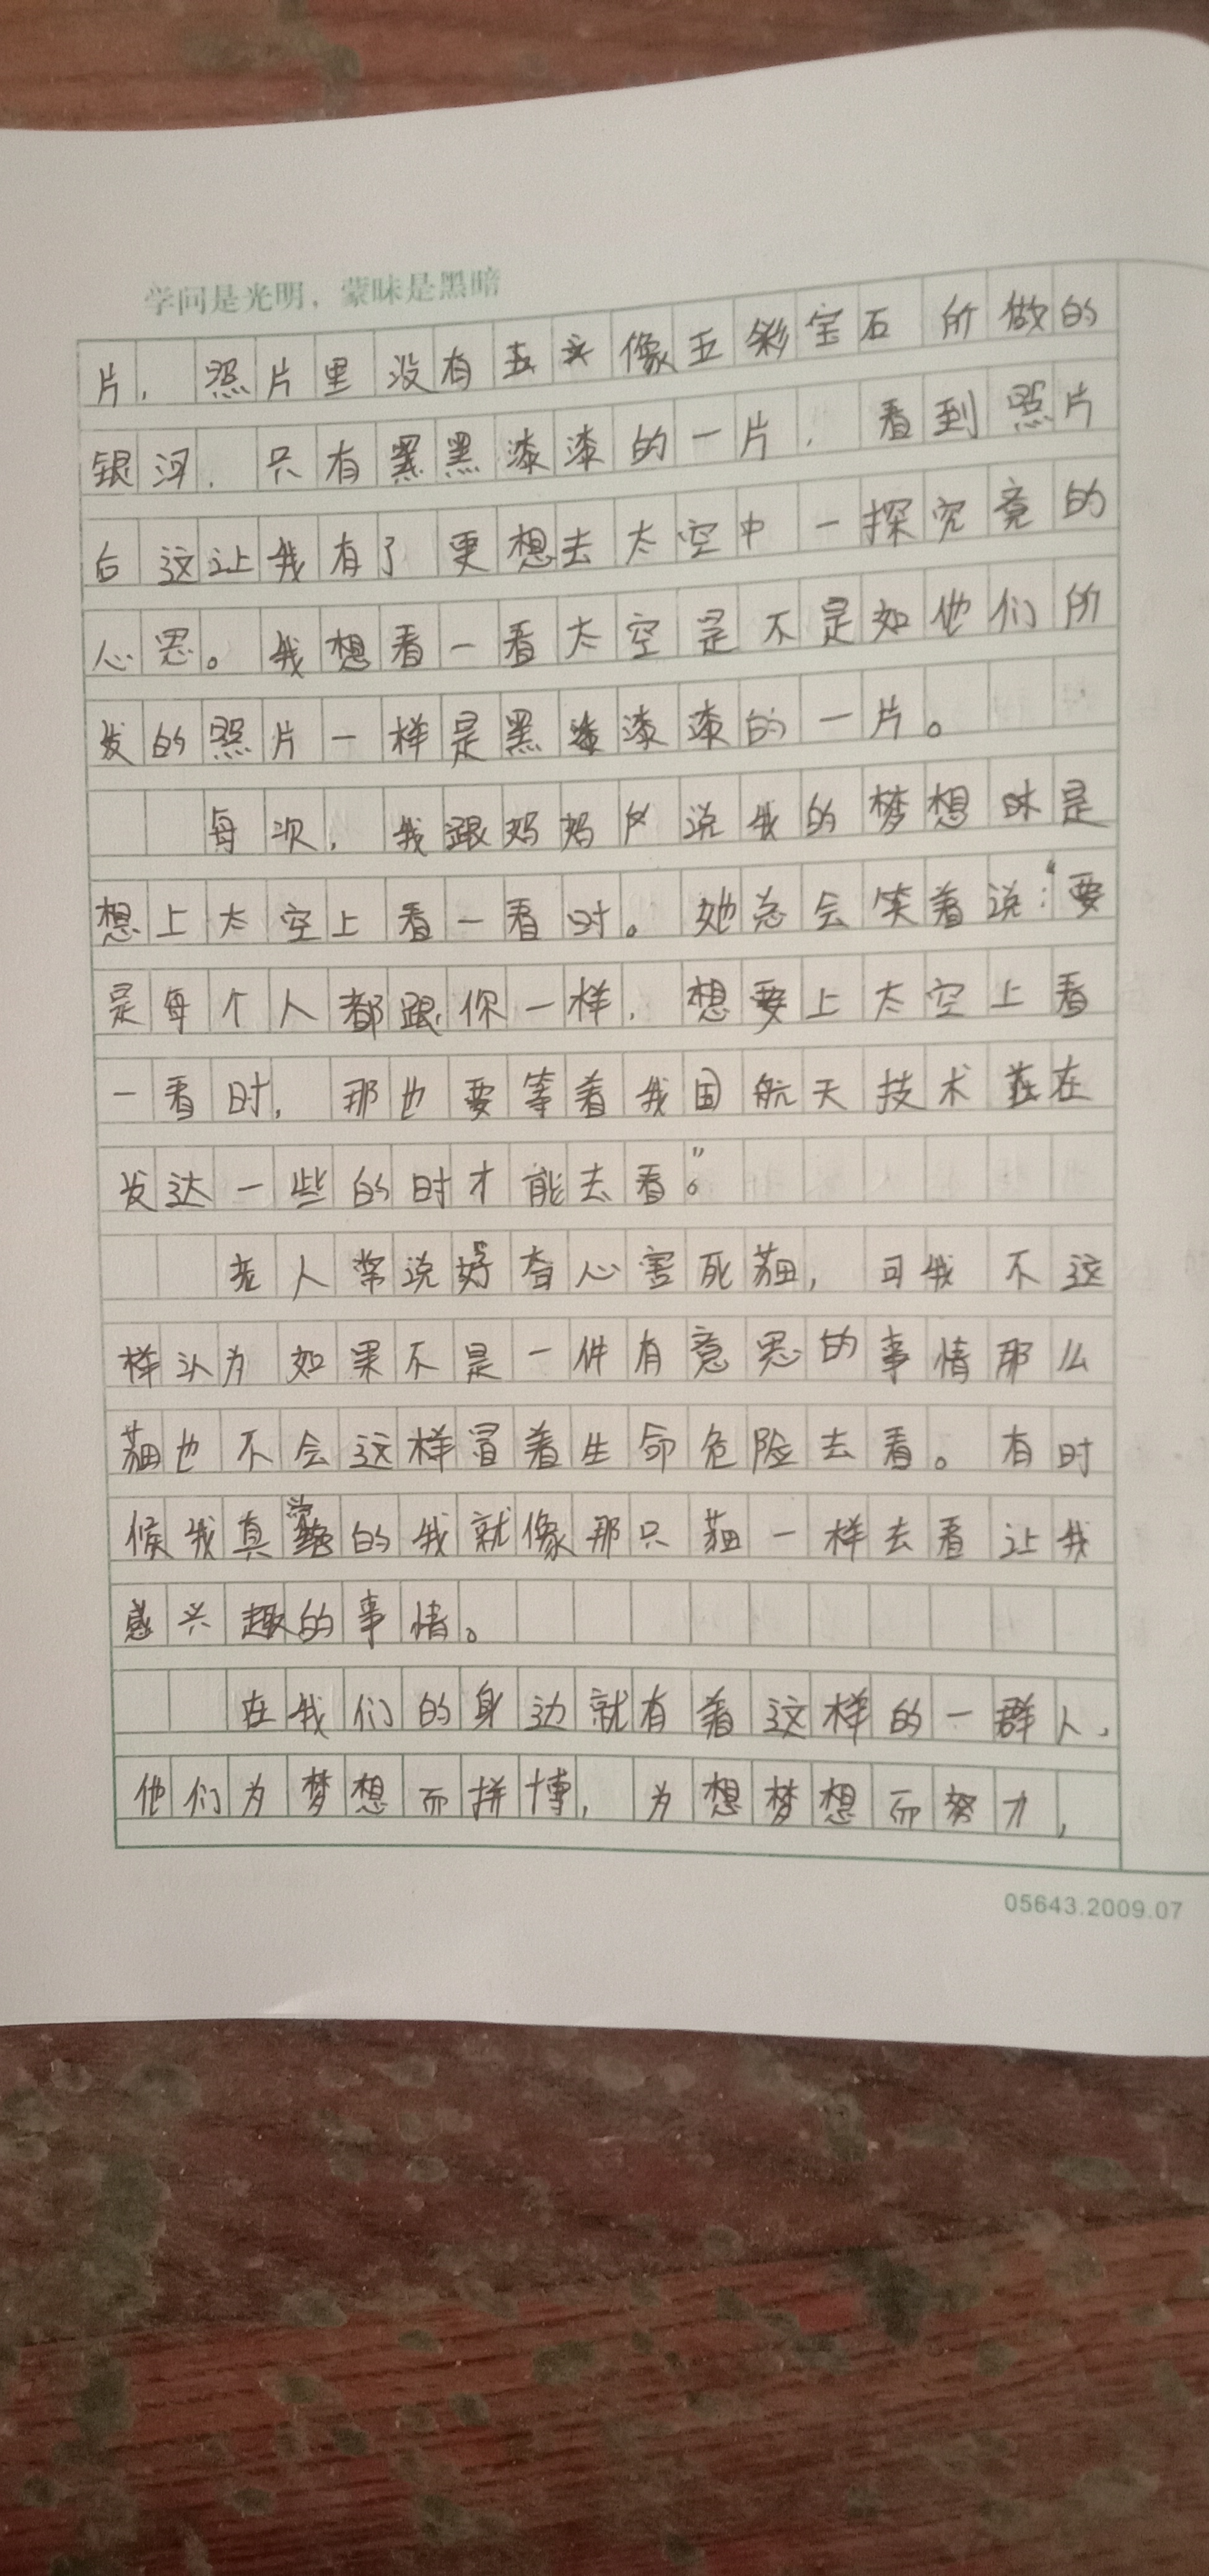 学问是光明，蒙昧是黑暗
片，照片里没有像五彩宝石所做的
银河，只有黑黑漆漆的一片，看到照片
后这让我有了更想去太空中一探究竟的
心思。我想看一看太空是不是如他们所
发的照片一样是黑漆漆的一片。
每次，我跟妈妈说我的梦想时是
想上太空上看一看时。她总会笑着说：“要
是每个人都跟你一样，想要上太空上看
一看时，那也要等着我国航天技术在
发达一些的时才能去看。”
老人常说好奇心害死猫，可我不这
样认为如果不是一件有意思的事情那么
猫也不会这样冒着生命危险去看。有时
候我真当的我就像那只猫一样去看让我
感兴趣的事情。
在我们的身边就有着这样的一群人，
他们为梦想而拼博，为想梦想而努力，
05643.2009.07